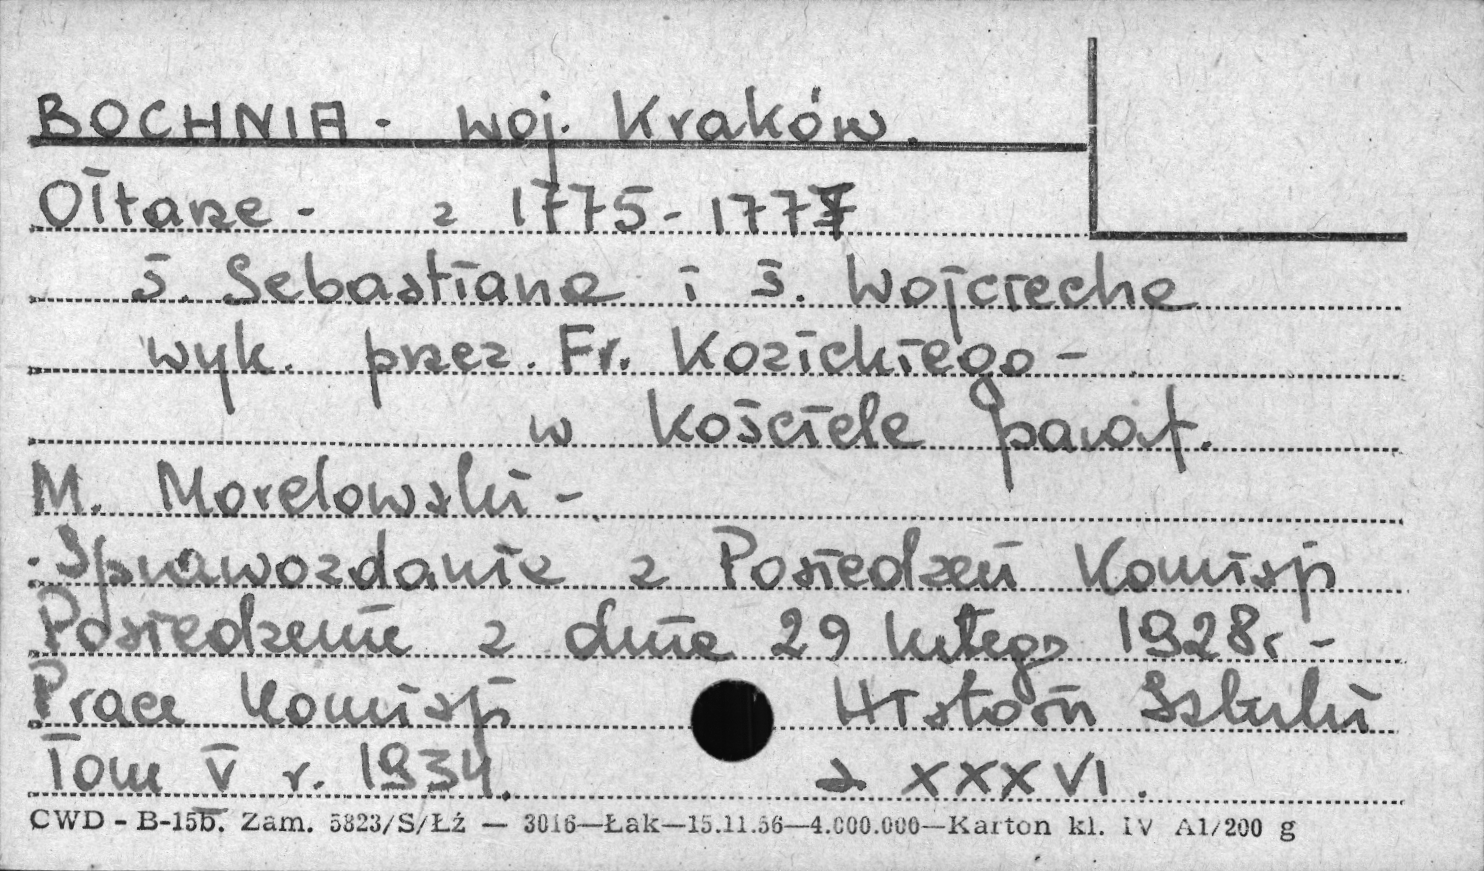 BOCHNIA - woj. Kraków.
Ołtarze - z 1775-1777
ś. Sebastiana i ś. Wojciecha
wyk. przez. Fr. Kozickiego -
w Kościele paraf.
M. Morelowski -
Sprawozdanie z Posiedzeń Komisji
Posiedzenie z dnia 29 lutego 1928r -
Prace Komisji Historii Sztuki
Tom V r. 1934. s. XXXVI.
CWD - B-15b. Zam. 5823/S/Łź — 3016—Łak—15.11.56—4.000.000—Karton kl. IV A1/200 g